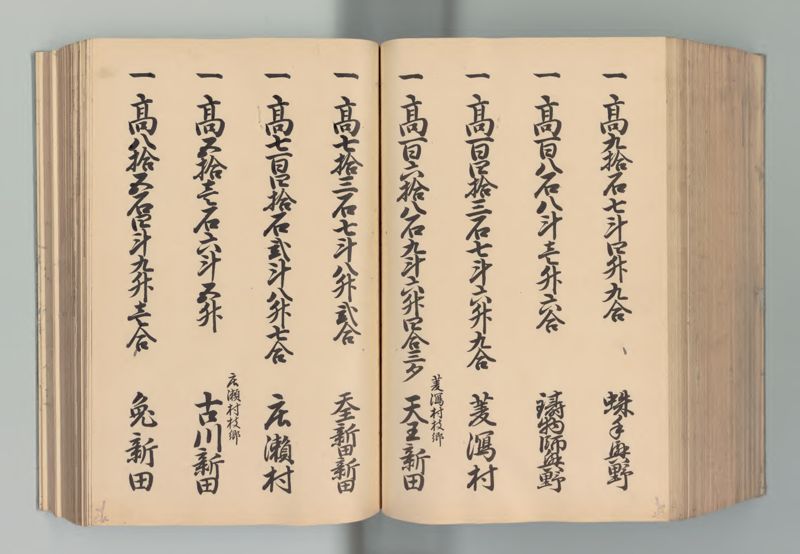 一 高九拾石七斗四升九合 蛛手興野
一 高百八石八斗壱升六合 鋳物師興野
一 高百四拾三石七斗六升九合 菱潟村
菱潟村枝郷
一 高百六拾八石九斗六升四合三夕 天王新田
一 高七拾三石七斗八升弐合 天王新田新田
一 高七百四拾石弐斗八升七合 庄瀬村
庄瀬村枝郷
一 高五拾壱石六斗五升 古川新田
一 高八拾五石四斗九升壱合 兔新田